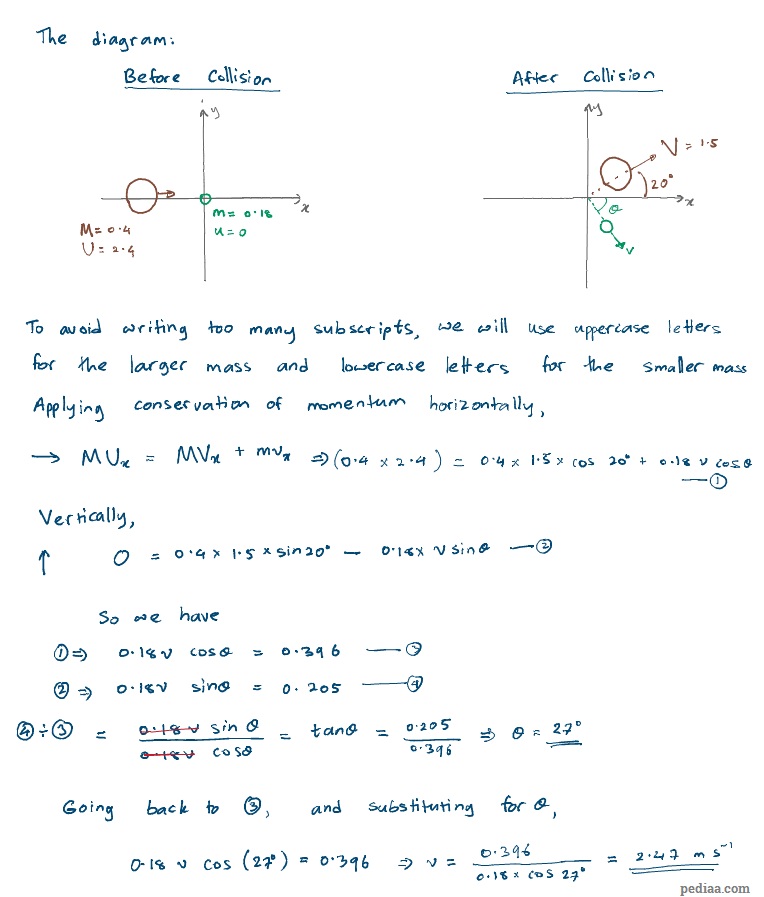 The diagram:
Before Collision
After Collision
y
y
V = 1.5
20°
x
x
θ
M = 0.4
U = 2.4
m = 0.18
u = 0
v
To avoid writing too many subscripts, we will use uppercase letters
for the larger mass and lowercase letters for the smaller mass
Applying conservation of momentum horizontally,
→ MUx = MVx + mvx ⇒ (0.4 × 2.4) = 0.4 × 1.5 × cos 20° + 0.18 v cosθ
— ①
Vertically,
↑ 0 = 0.4 × 1.5 × sin 20° — 0.18 × v sinθ — ②
So we have
① ⇒ 0.18v cosθ = 0.396 — ③
② ⇒ 0.18v sinθ = 0.205 — ④
④ ÷ ③ = 0.18 v sin θ / 0.18 v cosθ = tanθ = 0.205 / 0.396 ⇒ θ = 27°
Going back to ③, and substituting for θ,
0.18 v cos (27°) = 0.396 ⇒ v = 0.396 / 0.18 × cos 27° = 2.47 m s⁻¹
pediaa.com